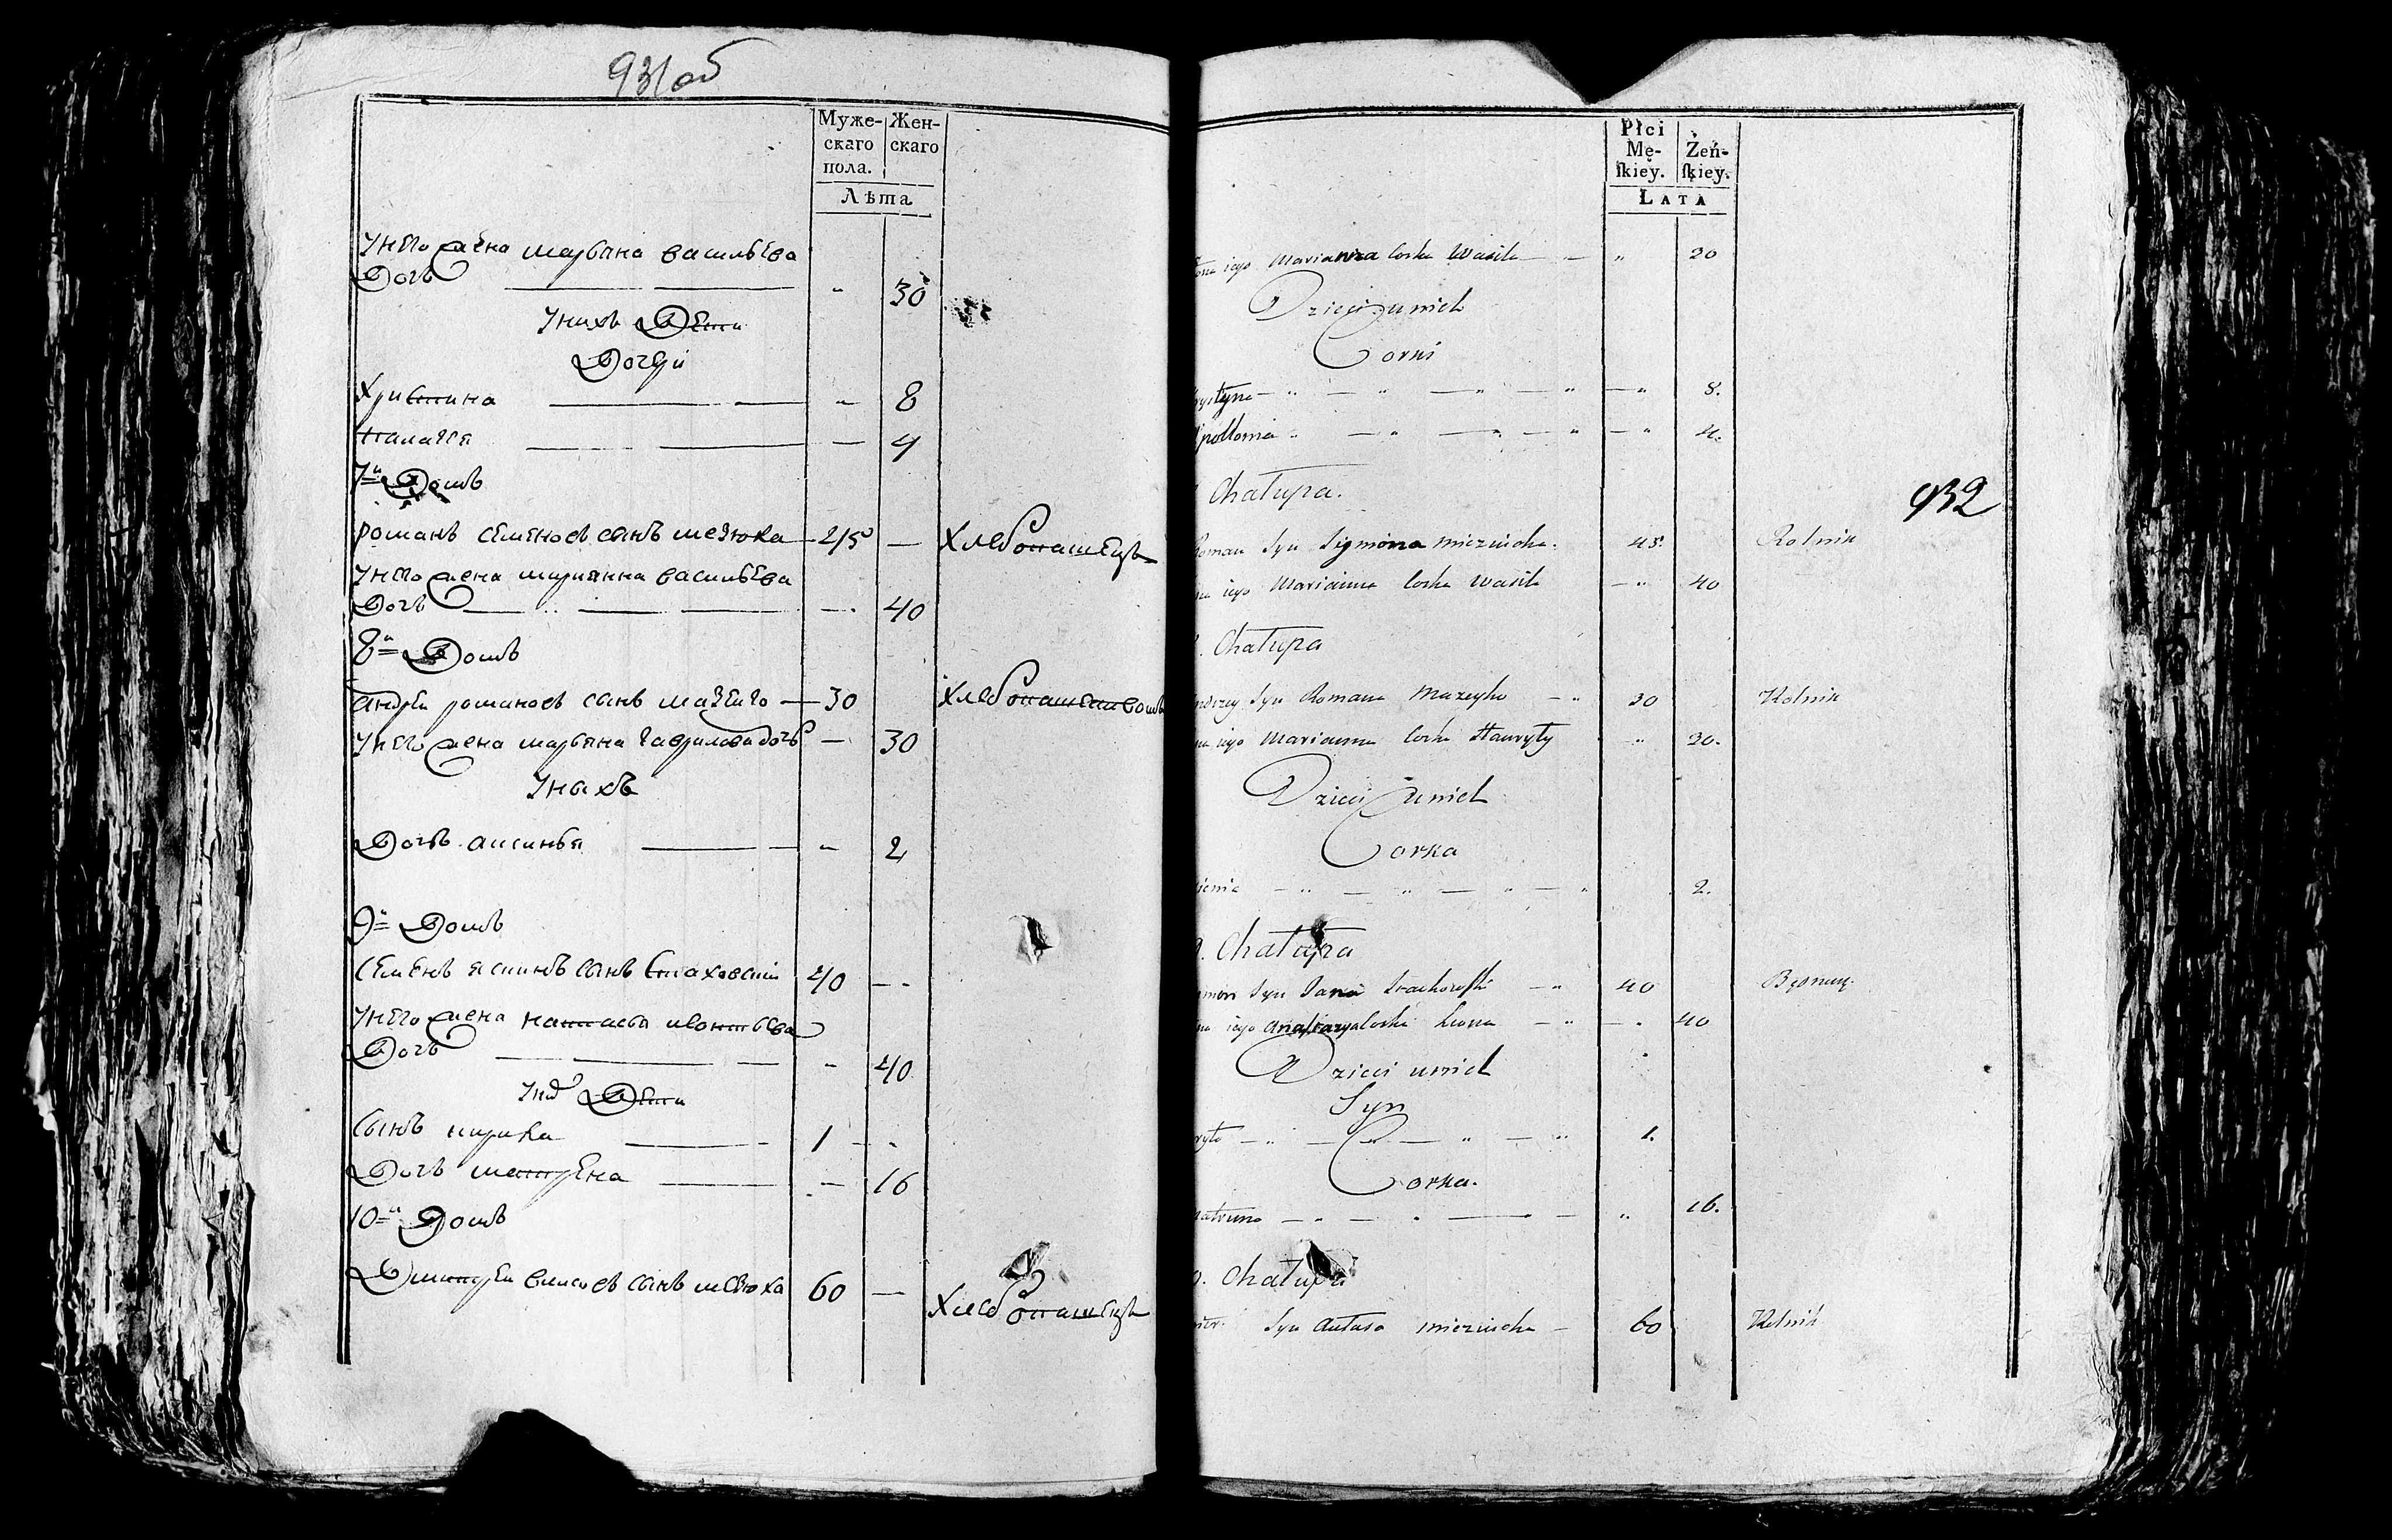 931об
Муже-
скаго
пола.
Жен-
скаго
Лѣта
у него жена марьяна васильева
Дочь — " 30
у нихъ Дети
Дочери
Христина — " 8
палагея — 4
7й Домъ
романъ семеновъ сынъ мезюка 45 — Хлебопашецъ
у него жена марианна васильева
Дочь — 40
8й Домъ
андрей романовъ сынъ мазейго — 30 Хлебопашествомъ
у него жена марьяна гаврилова дочь — 30
у ныхъ
Дочь аксинья — " 2
9й Домъ
Семенъ яскинъ сынъ Стаховский 40 —
у него жена настасья леонтьева
Дочь — " 40
у них Дети
Сынъ кирика — 1 —
Дочь матрена — 16
10й Домъ
Дмитрей власовъ сынъ мезюка 60 —
Хлебопашецъ
Płci
Mę-
ſkiey.
Żeń-
ſkiey.
LATA
iego Marianna Corka Wasila — " 20
Dzieci u nich
Corki
rystyna — " 8.
Apollonia — " 4.
Chałupa.
932
Roman Syn Sigmona mieziucha. 45. Rolnik
iego Marianna Corka Wasila — " 40
8. Chałupa
ndrzey Syn Romana Mazeyko — " 30 Rolnik
iego Marianna Corka Hawryły " 30.
Dzieci u nich
Corka
sienia — " 2.
9. Chałupa
ymon Syn Jana Stachowſki — " 40
iego Anaſtazya Corka Leona — " 40
Dzieci u nich
Syn
ryło — " 1.
Corka.
atruna — " 16.
10. Chałupa
Syn Aułasa mieziucha — 60 Rolnik